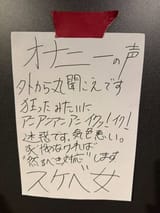 オナニーの声
外から丸聞こえです
狂ったみたいに
アンアンアンアンイク!イク!
迷惑です。気色悪い。
次
"然るべき対応"します
スケベ女